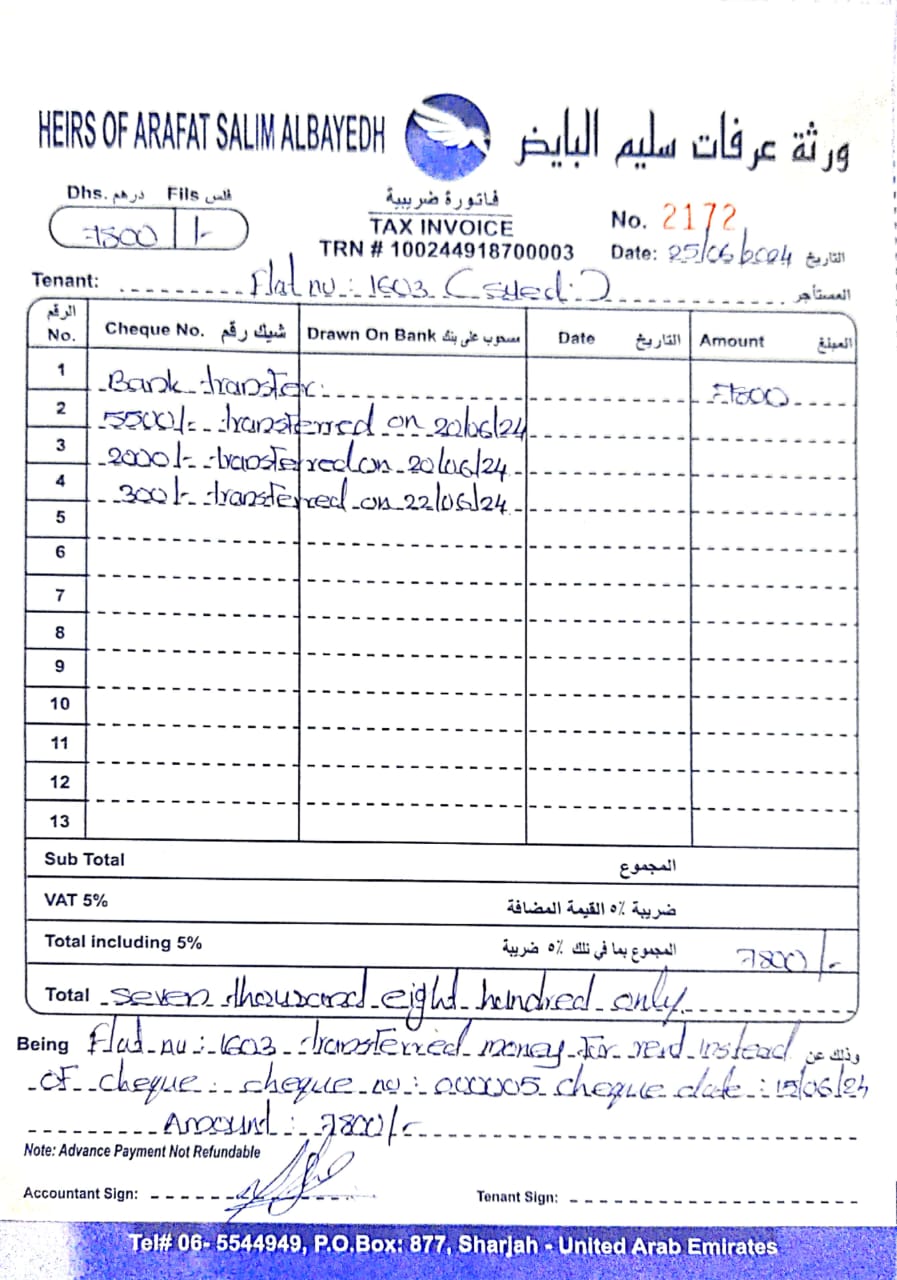 HEIRS OF ARAFAT SALIM ALBAYEDH
ورثة عرفات سليم البايض
Dhs. درهم Fils فلس
7500 /-
فاتورة ضريبية
TAX INVOICE
TRN # 100244918700003
No. 2172
Date: 25/06/2024 التاريخ
Tenant: Flat no : 1603 (Syed.) المستأجر
الرقم No. Cheque No. شيك رقم Drawn On Bank مسحوب على بنك Date التاريخ Amount المبلغ
1 Bank transfer. 7800
2 5500/- transferred on 20/06/24
3 2000/- transferred on 20/06/24
4 300/- transferred on 22/06/24
5
6
7
8
9
10
11
12
13
Sub Total المجموع
VAT 5% ضريبة ٥٪ القيمة المضافة
Total including 5% المجموع بما في تلك ٥٪ ضريبة 7800/-
Total seven thousand eight hundred only
Being Flat no : 1603 transferred money for rent instead وذلك عن
of cheque. cheque no : 000005 cheque date : 15/06/24
Amount : 7800/-
Note: Advance Payment Not Refundable
Accountant Sign: Tenant Sign:
Tel# 06- 5544949, P.O.Box: 877, Sharjah - United Arab Emirates